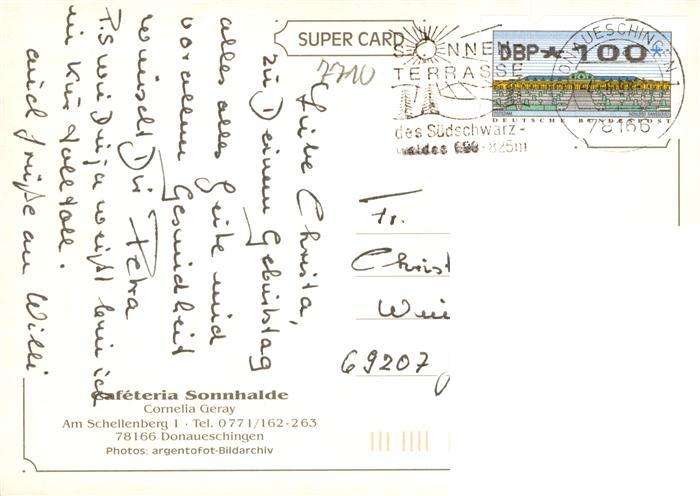 SUPER CARD
7710
SONNEN
TERRASSE
des Südschwarz-
waldes 690-825m
DBP * 100
DEUTSCHE BUNDESPOST
DONAUESCHINGEN 1
78166
Liebe Christa,
zu Deinem Geburtstag
alles alles Gute und
vor allem Gesundheit
wünscht Dir Petra
P.S wie Du ja weißt bin ich
in Kur toll toll.
auch Grüße an Willi
Fr.
Christ
69207
Caféteria Sonnhalde
Cornelia Geray
Am Schellenberg 1 · Tel. 0771/162-263
78166 Donaueschingen
Photos: argentofot-Bildarchiv